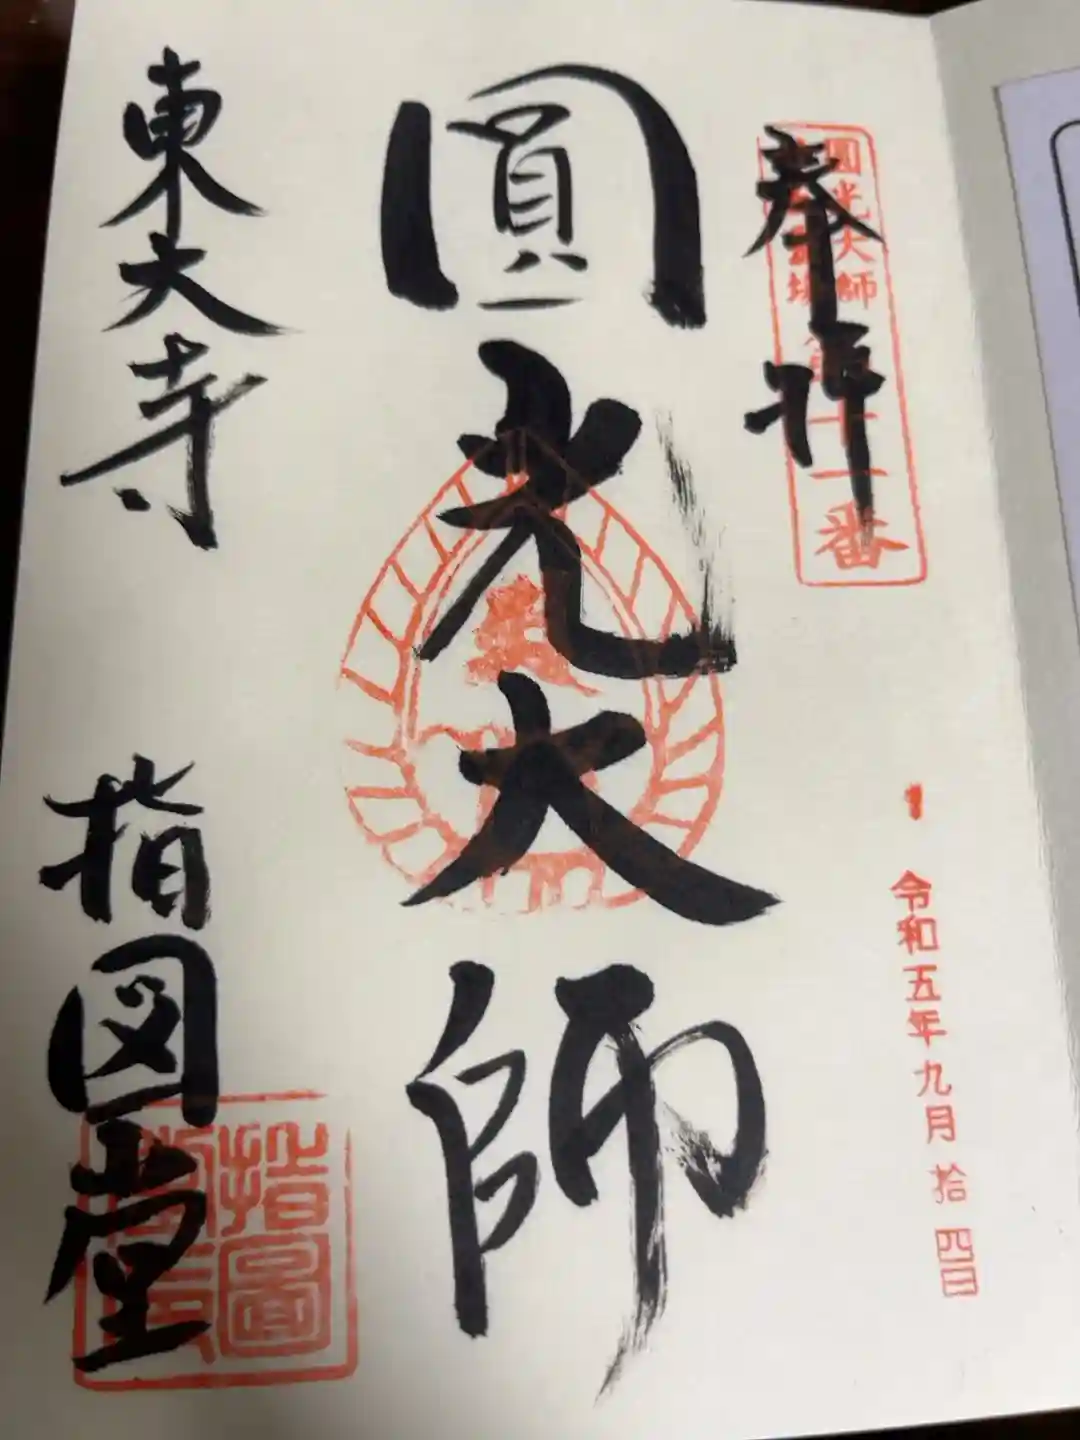 奉拝
圓光大師
十一番
令和五年九月拾四日
圓光大師
東大寺
指図堂
指圖